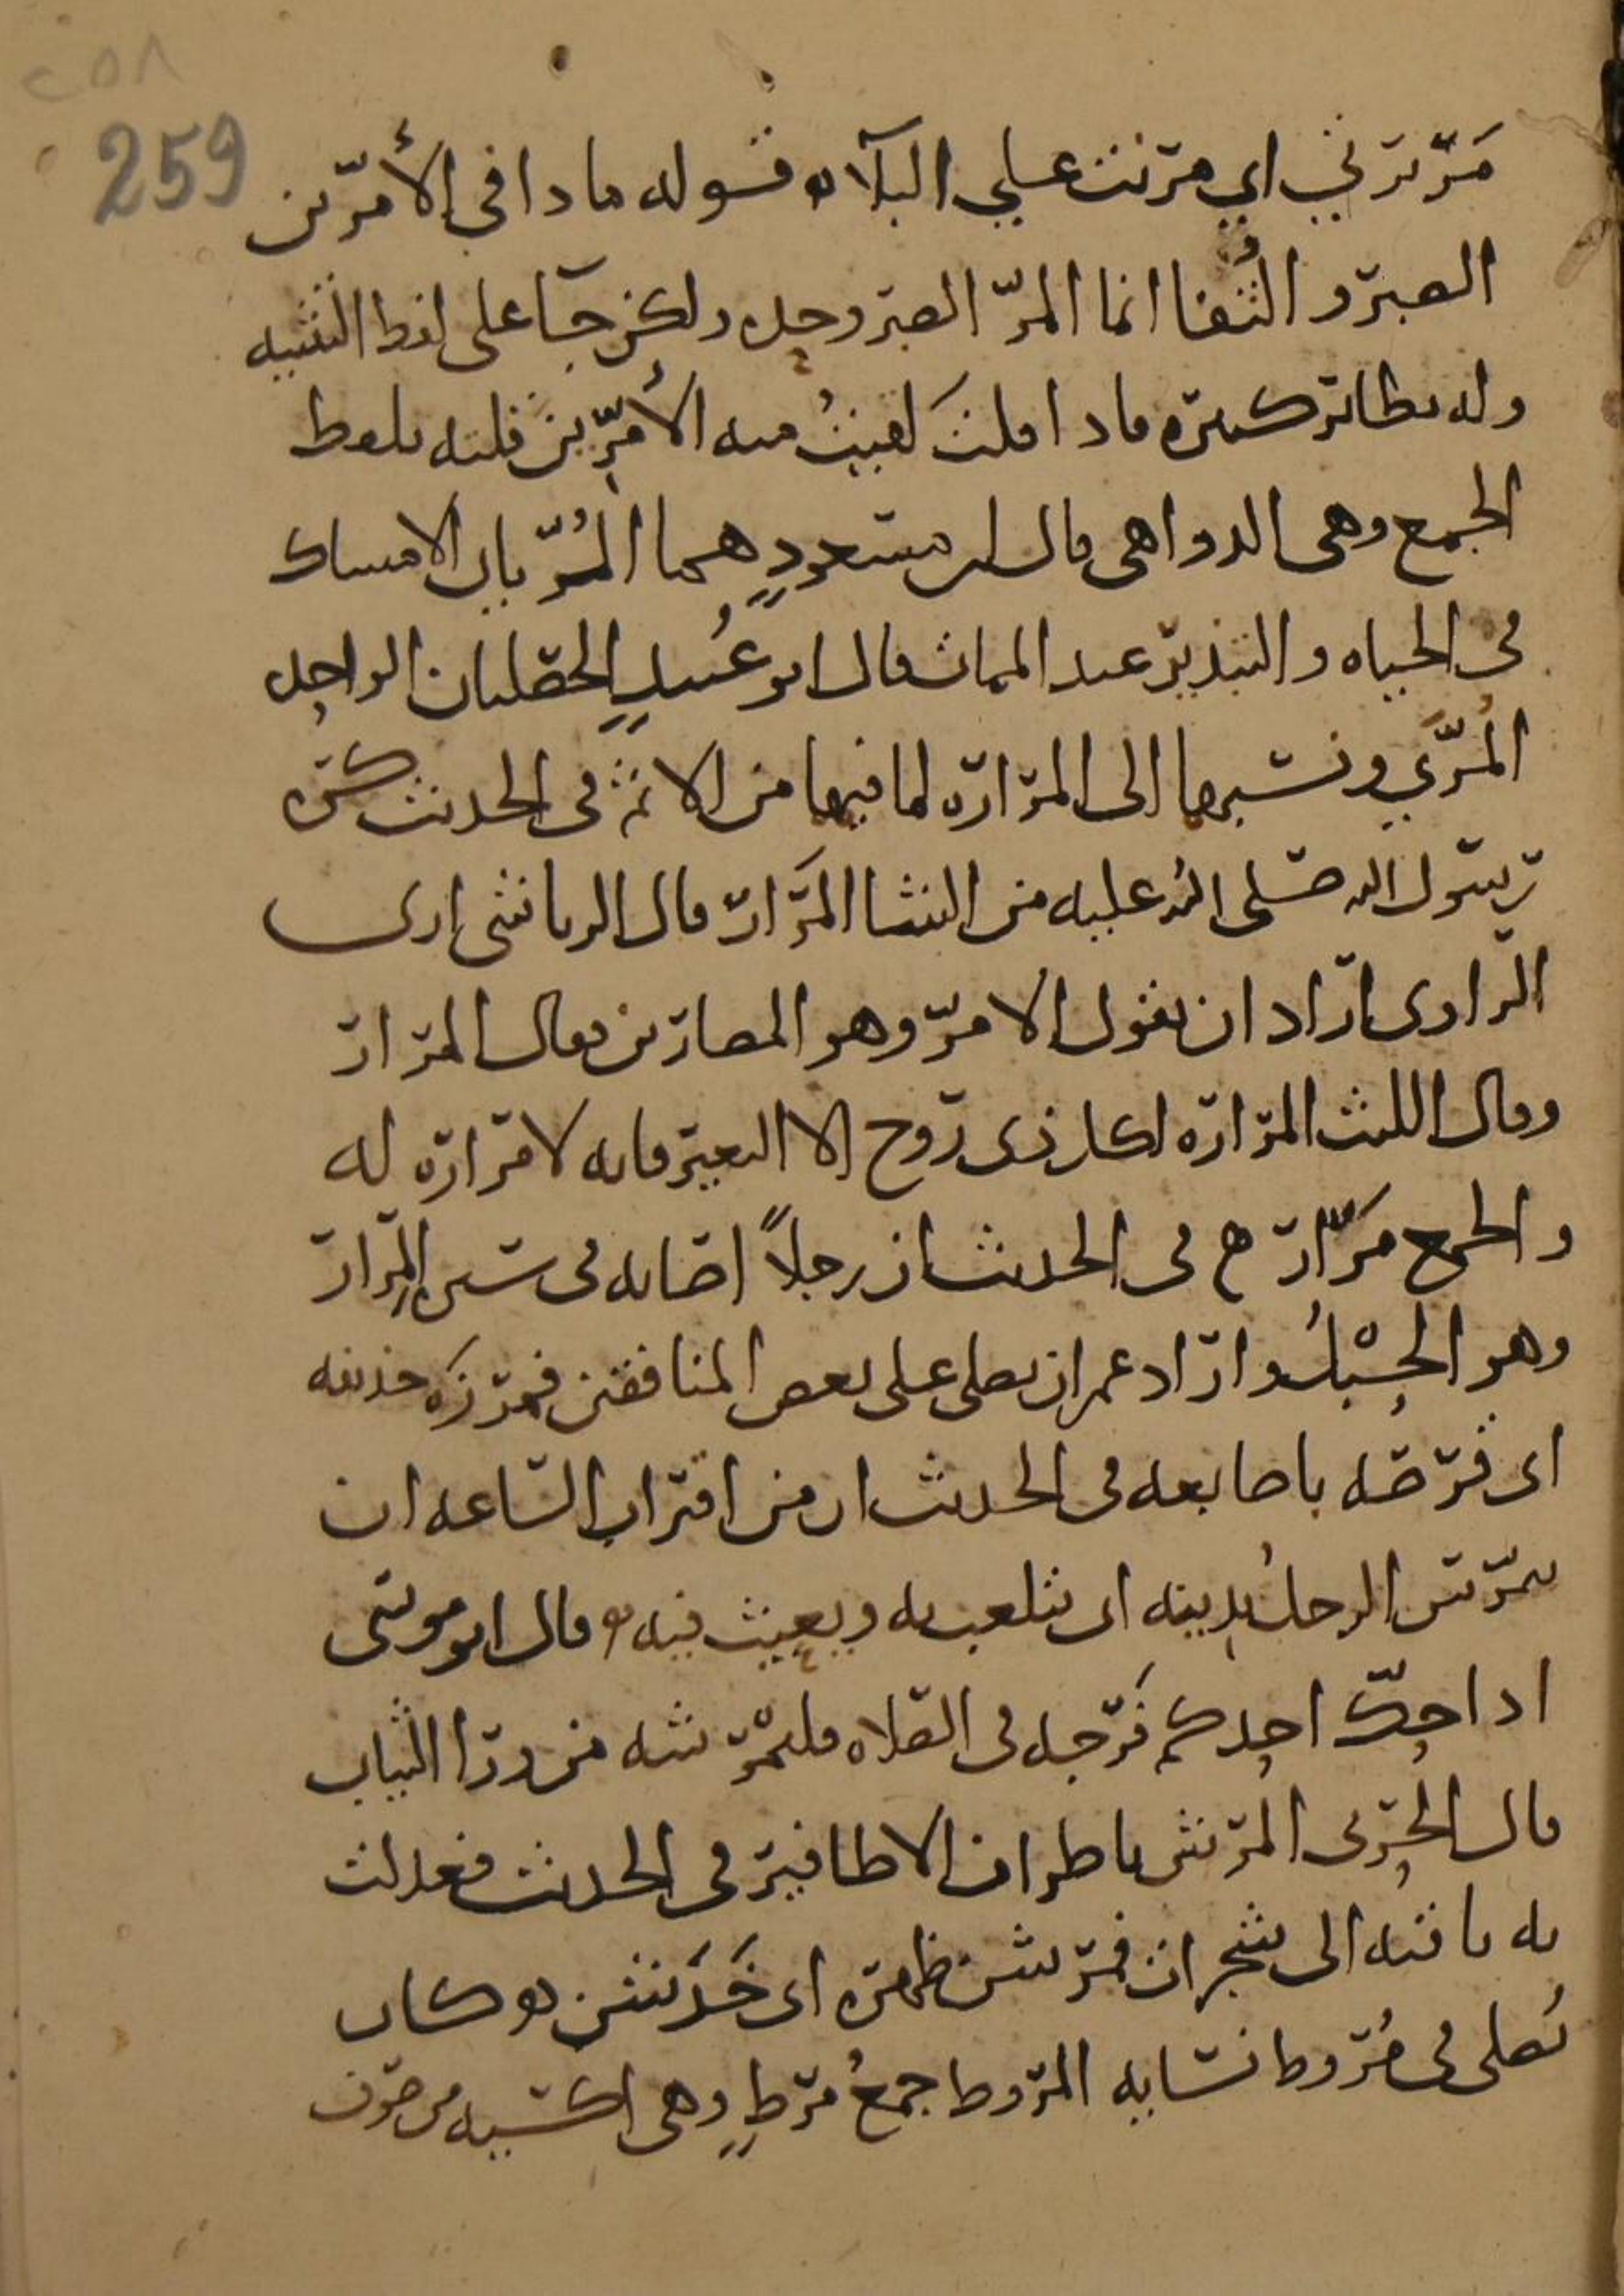 ٢٥٨
259
مَرَّ تزني اي مرنت على البلاء قوله ماذا في الأمرّين
الصبر والثُّفا انما المرّ الصبر وحده ولكن جآ على لفظ التثنيه
وله نظائر كثيره فاذا قلتَ لقيتُ منه الأَمَرِّين قلته بلفظ
الجمع وهى الدواهى قال ابن مسعودٍ هما المُرّيان الامساك
فى الحياه والتبذير عند الممات قال ابو عُبيدٍ الخصلتان الواحده
المُرّي ونسبهما الى المراره لما فيهما من الاثم فى الحديث كره
رسول الله صلى الله عليه من الشا المَرَار قال الرياشى ارى
الراوى اراد ان يقول الامرّ وهو المصارين فقال المرار
وقال الليث المراره لكل ذى روح الا البعير فانه لا مراره له
والجمع مَرَار ح فى الحديث ان رجلاً اصابه فى سيره المِرار
وهو الحَبْلُ واراد عمر ان يصلى على بعض المنافقين فمرزَه حذيفه
اى قرصه باصابعه فى الحديث ان من اقتراب الساعه ان
يتمرّس الرجلُ بدينه اى يتلعب به ويعبث فيه وقال ابو موسى
اذا حكّ احدكم فَرجه فى الصلاه فليمْرشه من ورا الثياب
قال الحربى المرش باطراف الاظافير فى الحديث فعدلت
به ناقته الى شجرات فمرشن ظهره اى خَدَشن و كان
يُصلى فى مُروط نسايه المروط جمعُ مرطٍ وهى اكسيه من صوف